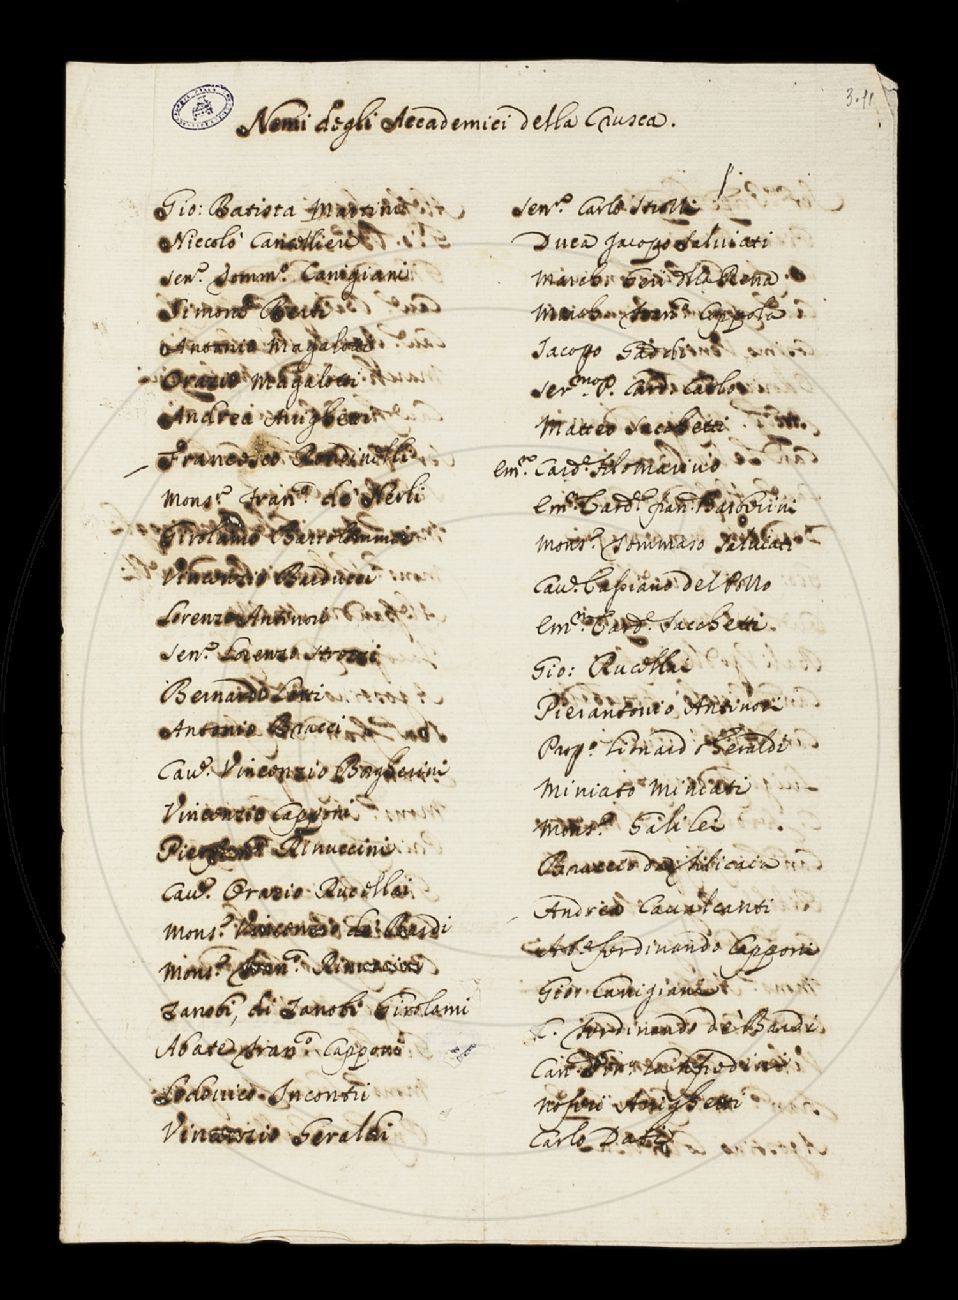 3.11
Nomi degli Accademici della Crusca.
Gio: Batista Martini
Niccolò Cancellieri
Sen.re Tomm.o Canigiani
Simone Berti
Antonio Magalotti
Orazio Magalotti
Andrea Arrighetti
Francesco Rondinelli
Mons.re Fran.o de Nerli
Girolamo Bartolommei
Vincenzio Barducci
Lorenzo Antinori
Sen.re Lorenzo Strozzi
Bernardo
Antonio Bracci
Cav.e Vincenzio Borgherini
Vincenzio Capponi
Rinuccini
Cav.e Orazio Rucellai
Mons.re Vincenzio de Bardi
Mons.re Fran.o Rinuccini
Zanobi, di Zanobi Girolami
Abate Fran.o Capponi
Lodovico Incontri
Vincenzio Geraldi
Sen.re Carlo Strozzi
Duca Jacopo Salviati
March: Geri della Rena
March: Fran.o Coppola
Jacopo Gaddi
Ser.mo P. Card: Carlo
Matteo Sacchetti
Em.o Card.e Filomarino
Em.o Card.e Fran: Barberini
Mons.re Tommaso Salviati
Cav.e Cassiano del Pozzo
Em.o Card.e Sacchetti
Gio: Rucellai
Pierantonio Antinori
Prop.o Lionardo Gheraldi
Miniato Miniati
Mons.re Galilei
Braccio da Filicaia
Andrea Cavalcanti
Ab.e Ferdinando Capponi
Gior Canigiani
C. Ferdinando de' Bardi
Can: Lanfredini
Noferi Arrighetti
Carlo Dati